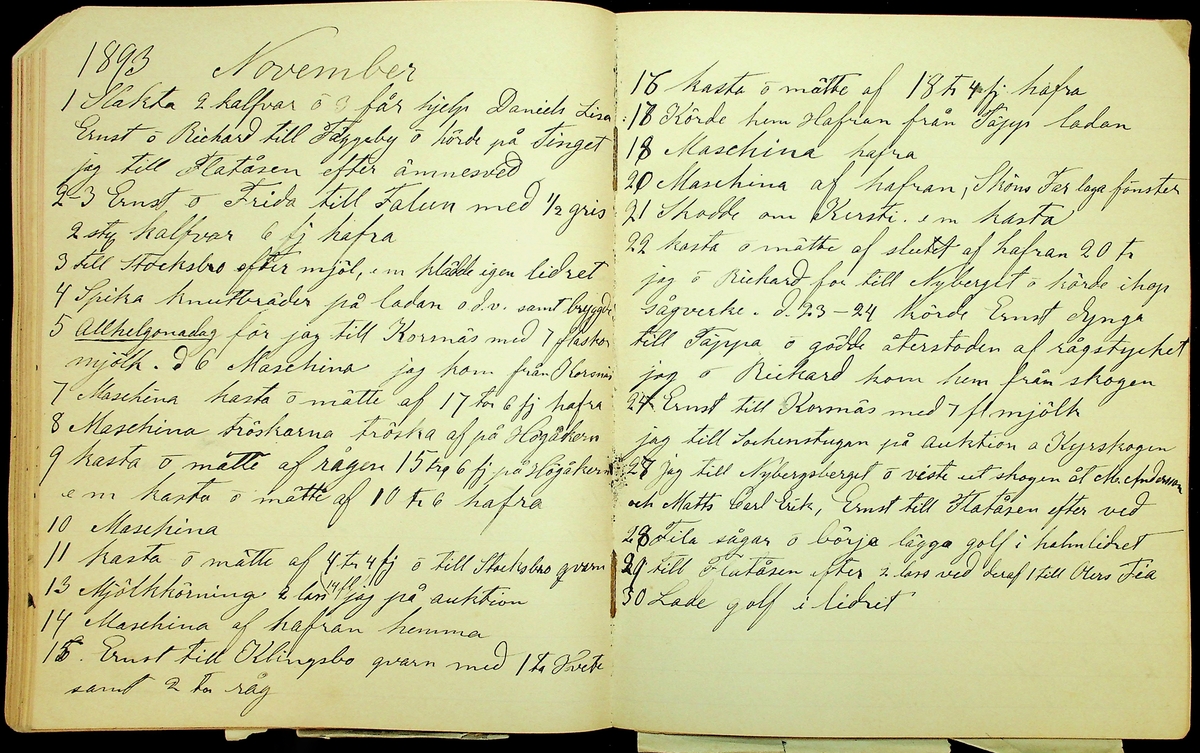 1893 November
1 Slakta 2 kalfvar ō 3 får hjelp Daniels Lisa
Ernst ō Richard till Faggeby ō körde på Tinget
jag till Flatåsen efter ämnesved
2-3 Ernst ō Frida till Falun med 1/2 gris
2 styc kalfvar 6 fj hafra
3 till Stocksbro efter mjöl, em klädde igen lidret
4 Spika knutbräder på ladan o.d.v. samt brygde
5 Allhelgonadag for jag till Korsnäs med 7 flaskor
mjölk. d 6 Maschina jag kom från Korsnäs
7 Maschina kasta ō mätte af 17 tr 6 fj hafra
8 Maschina tröskarna tröska af på Högåkern
9 kasta ō mätte af rågen 15 tr 6 fj på Högåkern
em kasta ō mätte af 10 tr 6 hafra
10 Maschina
11 kasta ō mätte af 4 tr 4 fj ō till Stocksbro qvarn
13 Mjölkkörning 2 lass 14 fl jag på auktion
14 Maschina af hafran hemma
15. Ernst till Klingsbo qvarn med 1 ta Hvete
samt 2 tr råg
16 kasta ō mätte af 18 tr 4 fj hafra
17 Körde hem Hafran från Täpp ladan
18 Maschina hafra
20 Maschina af hafran, Sköns Far laga fönster
21 Skodde om Kersti. em kasta
22 kasta ō mätte af slutet af hafran 20 tr
jag ō Richard for till Nyberget ō körde ihop
sågverke. d. 23-24 Körde Ernst dynga
till Täppa ō gödde återstoden af rågstycket
jag ō Richard kom hem från skogen
24 Ernst till Korsnäs med 7 fl mjölk
jag till Sockenstugan på auktion a Kyrskogen
27 jag till Nybergsberget ō viste ut skogen åt M. Andersson
och Matts Carl Erik, Ernst till Flatåsen efter ved
28 Fila sågar ō börja lägga golf i halmlidret
29 till Flatåsen efter 2 lass ved deraf 1 till Olers Fia
30 Lade golf i lidret